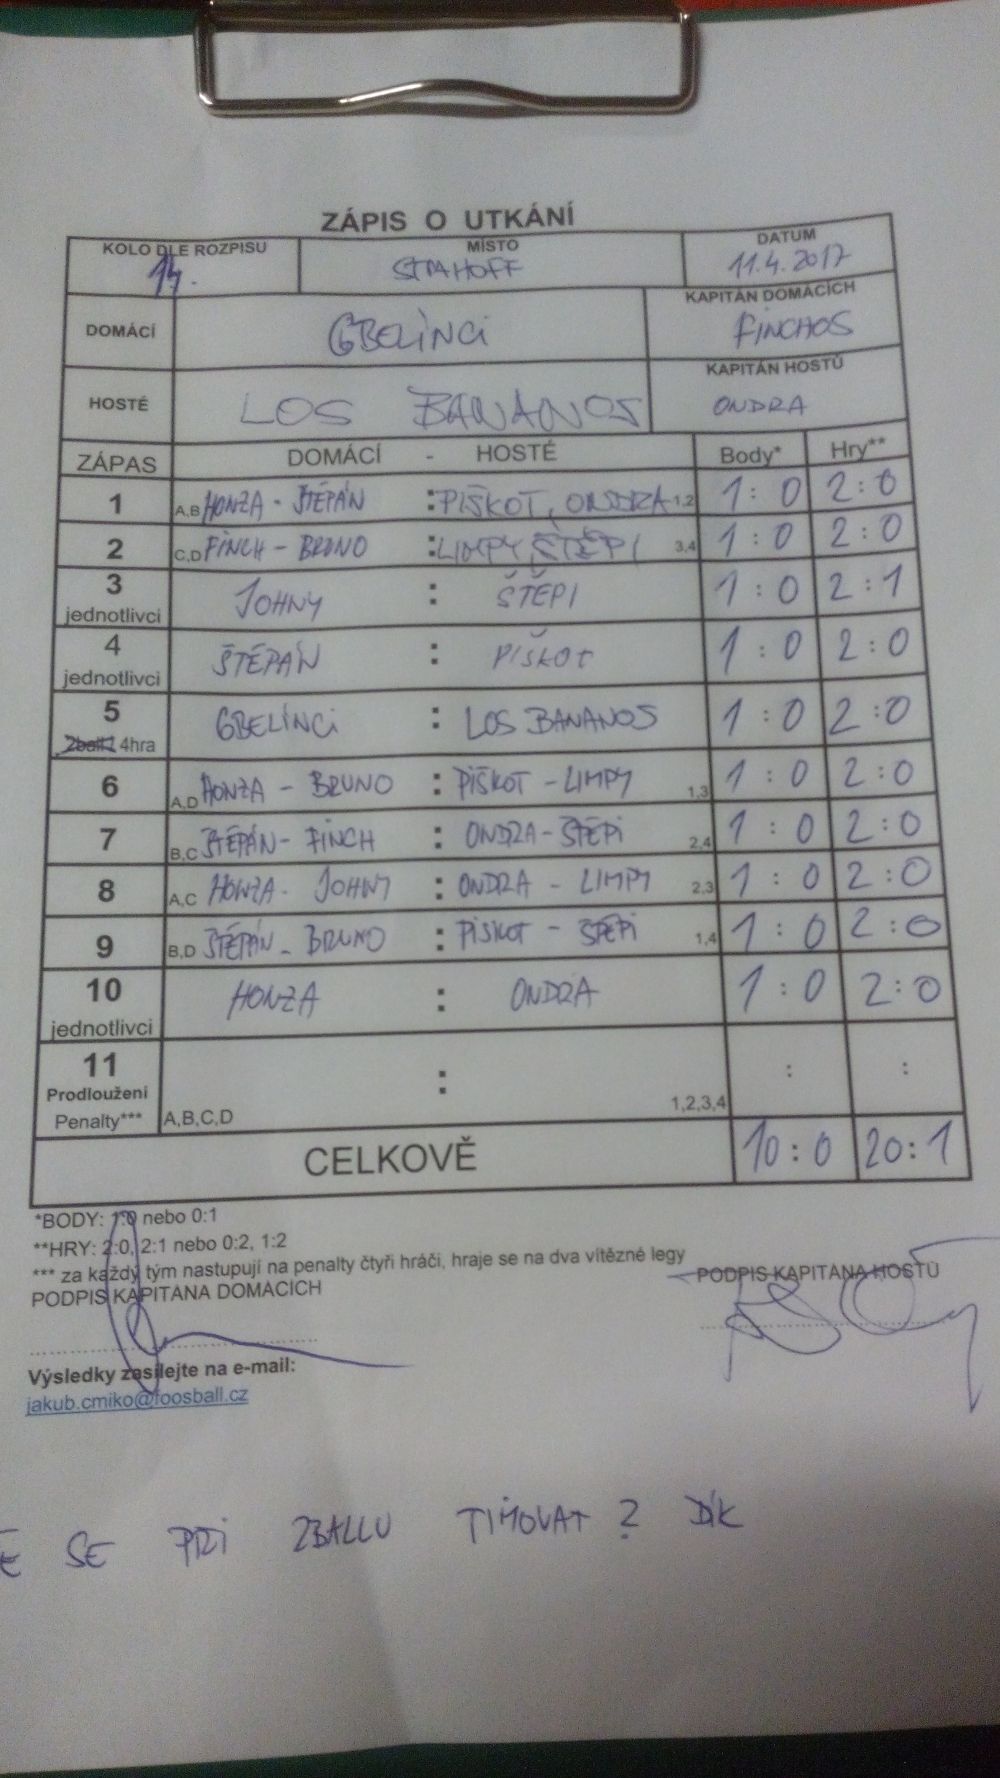 ZÁPIS O UTKÁNÍ
KOLO DLE ROZPISU MÍSTO DATUM
14. STRAHOFF 11.4.2017
DOMÁCÍ GBELÍNCI KAPITÁN DOMÁCÍCH FINCHOS
HOSTÉ LOS BANANOS KAPITÁN HOSTŮ ONDRA
ZÁPAS DOMÁCÍ - HOSTÉ Body* Hry**
1 A,B HONZA - ŠTĚPÁN : PIŠKOT, ONDRA 1,2 1:0 2:0
2 C,D FINCH - BRUNO : LIMPY, ŠTĚPI 3,4 1:0 2:0
3 jednotlivci JOHNY : ŠTĚPI 1:0 2:1
4 jednotlivci ŠTĚPÁN : PIŠKOT 1:0 2:0
5 2ball 4hra GBELÍNCI : LOS BANANOS 1:0 2:0
6 A,D HONZA - BRUNO : PIŠKOT - LIMPY 1,3 1:0 2:0
7 B,C ŠTĚPÁN - FINCH : ONDRA - ŠTĚPI 2,4 1:0 2:0
8 A,C HONZA - JOHNY : ONDRA - LIMPY 2,3 1:0 2:0
9 B,D ŠTĚPÁN - BRUNO : PIŠKOT - ŠTĚPI 1,4 1:0 2:0
10 jednotlivci HONZA : ONDRA 1:0 2:0
11 Prodloužení Penalty*** A,B,C,D : 1,2,3,4 : :
CELKOVĚ 10:0 20:1
*BODY: 1:0 nebo 0:1
**HRY: 2:0, 2:1 nebo 0:2, 1:2
*** za každý tým nastupují na penalty čtyři hráči, hraje se na dva vítězné legy
PODPIS KAPITÁNA DOMÁCÍCH PODPIS KAPITÁNA HOSTŮ
Výsledky zasílejte na e-mail:
jakub.cmiko@foosball.cz
SE PŘI 2BALLU TIMOVAT? DÍK